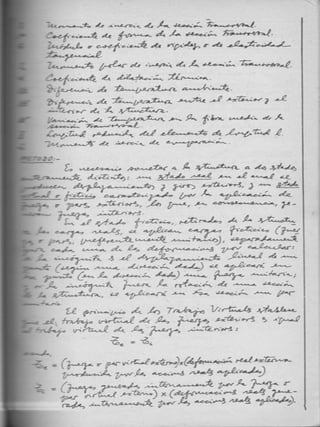 Momento de inercia de la sección transversal.
Coeficiente de forma de la sección transversal.
Módulo o coeficiente de rigidez, o de elasticidad
tangencial
Momento polar de inercia de la sección transversal.
Coeficiente de dilatación térmica.
Diferencia de temperatura ambiente.
Diferencia de temperatura entre el exterior y el
interior de la estructura.
Variación de temperatura en la fibra media de la
sección transversal.
Longitud reducida del elemento de longitud l.
Momento de inercia de comparación.
METODO:-
Es necesario someter a la estructura a dos estados
distintos: un estado real en el cual se
desplazamientos y giros exteriores, y un estado
o ficticio caracterizado por la aplicación de
o pares exteriores, los que, en consecuencia, ge-
fuerzas interiores.
En el estado ficticio, retiradas de la estructu
las cargas reales, se aplican cargas ficticias (fuer
o pares, preferentemente unitarios), separadamente
cada una de las deformaciones por calcular:
la incógnita es el desplazamiento lineal de un
(según una dirección dada) se aplicará en
(en la dirección dada) una fuerza unitaria;
la incógnita fuera la rotación de una sección
la estructura, se aplicará en esa sección un par
El principio de los Trabajos Virtuales establece
el trabajo virtual de las fuerzas exteriores es igual
trabajo virtual de las fuerzas interiores:
= (fuerza o par virtual externo)x(deformación real externa
producida por las acciones reales aplicadas)
= (fuerzas generadas internamente por la fuerza o
par virtual externo) x (deformaciones reales gene-
radas internamente por las acciones reales aplicadas).